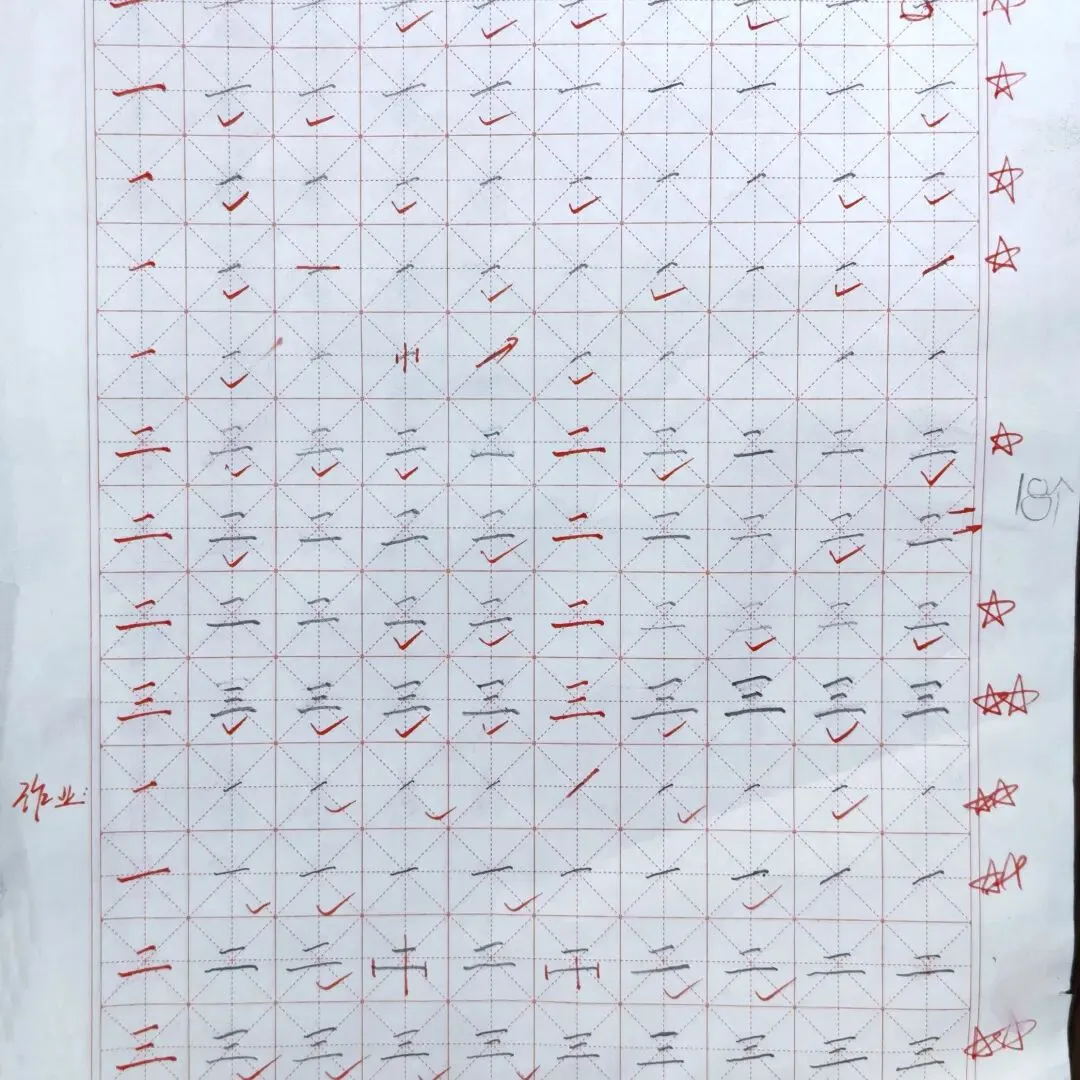 一一一一一一一一一一
一一一一一一一一一一
一一一一一一一一一一
一一一一一一一一
二二二二二二二二二二
二二二二二二二二二二 18个
二二二二二二二二二二
三三三三三三三三三三
作业: 一一一一一一一一一
一一一一一一一一一一
二二二二二二二二二二
三三三三三三三三三三